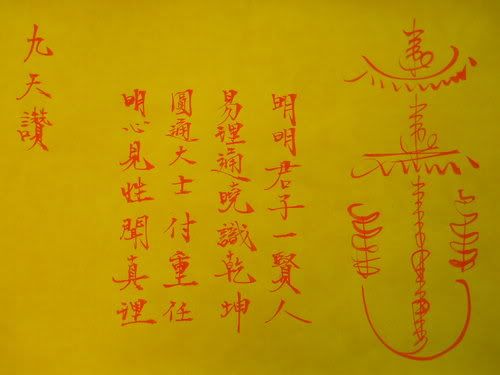 明明君子一賢人
易理通曉識乾坤
圓通大士付重任
明心見性聞真理
九天讚